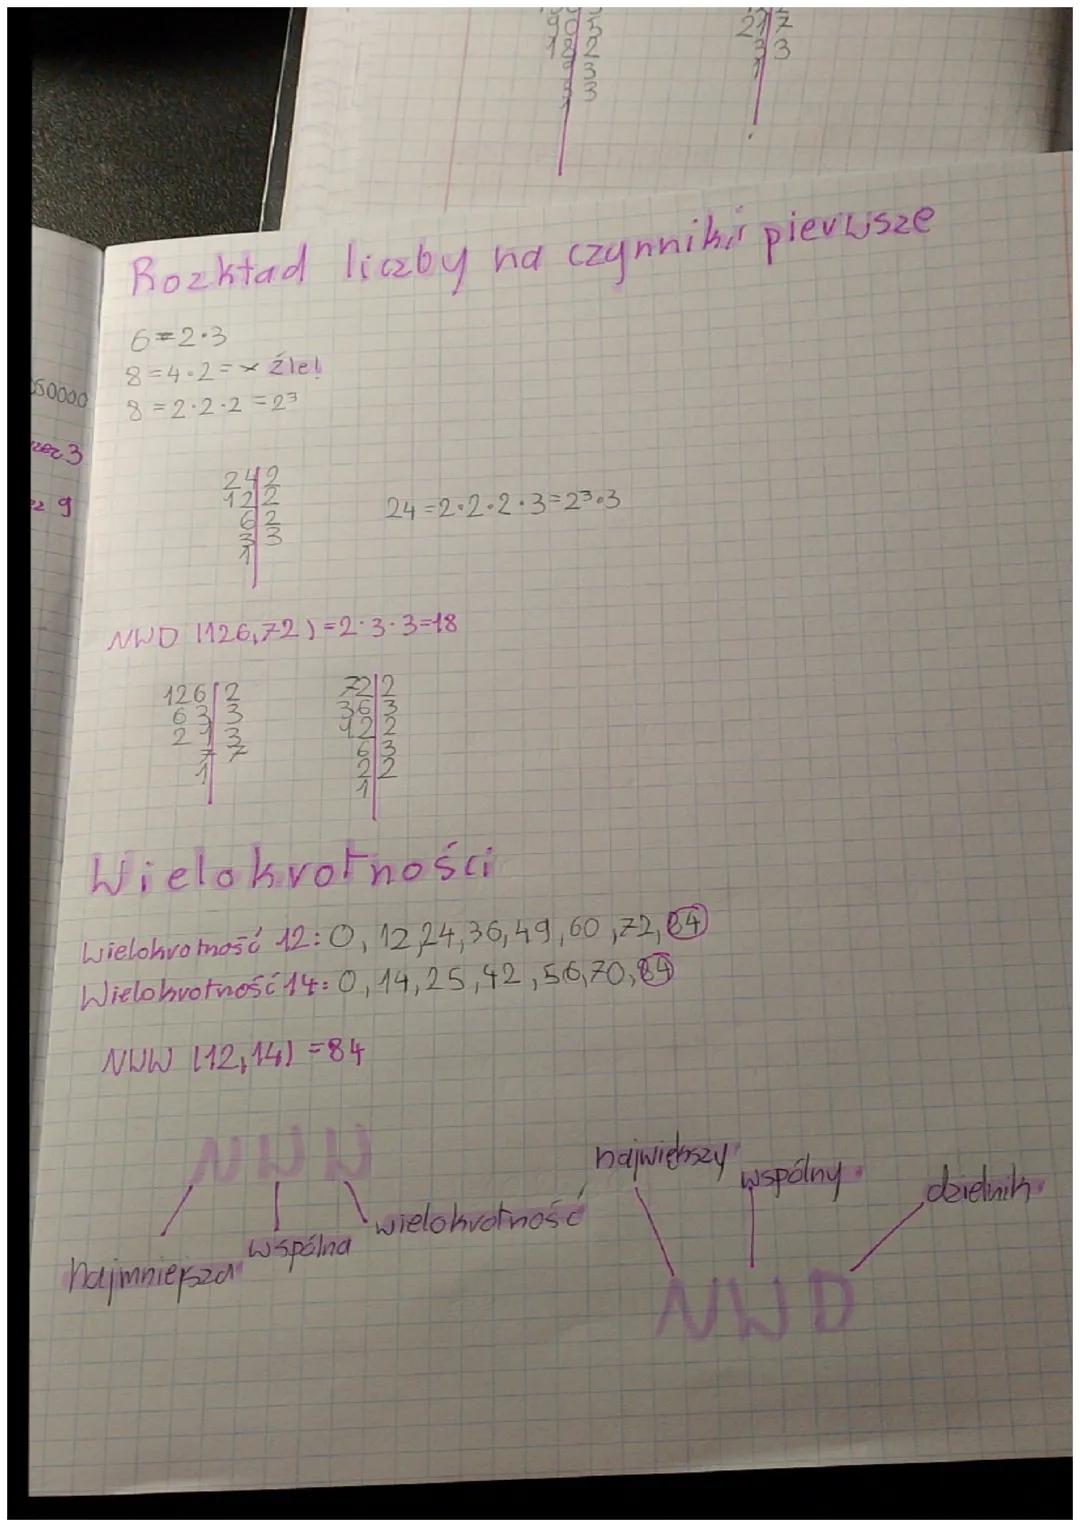 9 0 5
18 2
9 3
3 3
1
21 7
3 3
1
Rozkład liczby na czynniki pierwsze
6=2·3
8=4·2= × źle!
8=2·2·2=2³
50000
3
9
24 2
12 2
6 2
3 3
1
24=2·2·2·3=2³·3
NWD (126,72)=2·3·3=18
126 2
63 3
21 3
7 7
1
72 2
36 3
12 2
6 3
2 2
1
Wielokrotności
Wielokrotność 12: 0, 12,24,36,49,60,72,84
Wielokrotność 14: 0,14,25,42,56,70,84
NWW (12,14) =84
NWW
najmniejsza
wspólna
wielokrotność
największy
wspólny
dzielnik
NWD